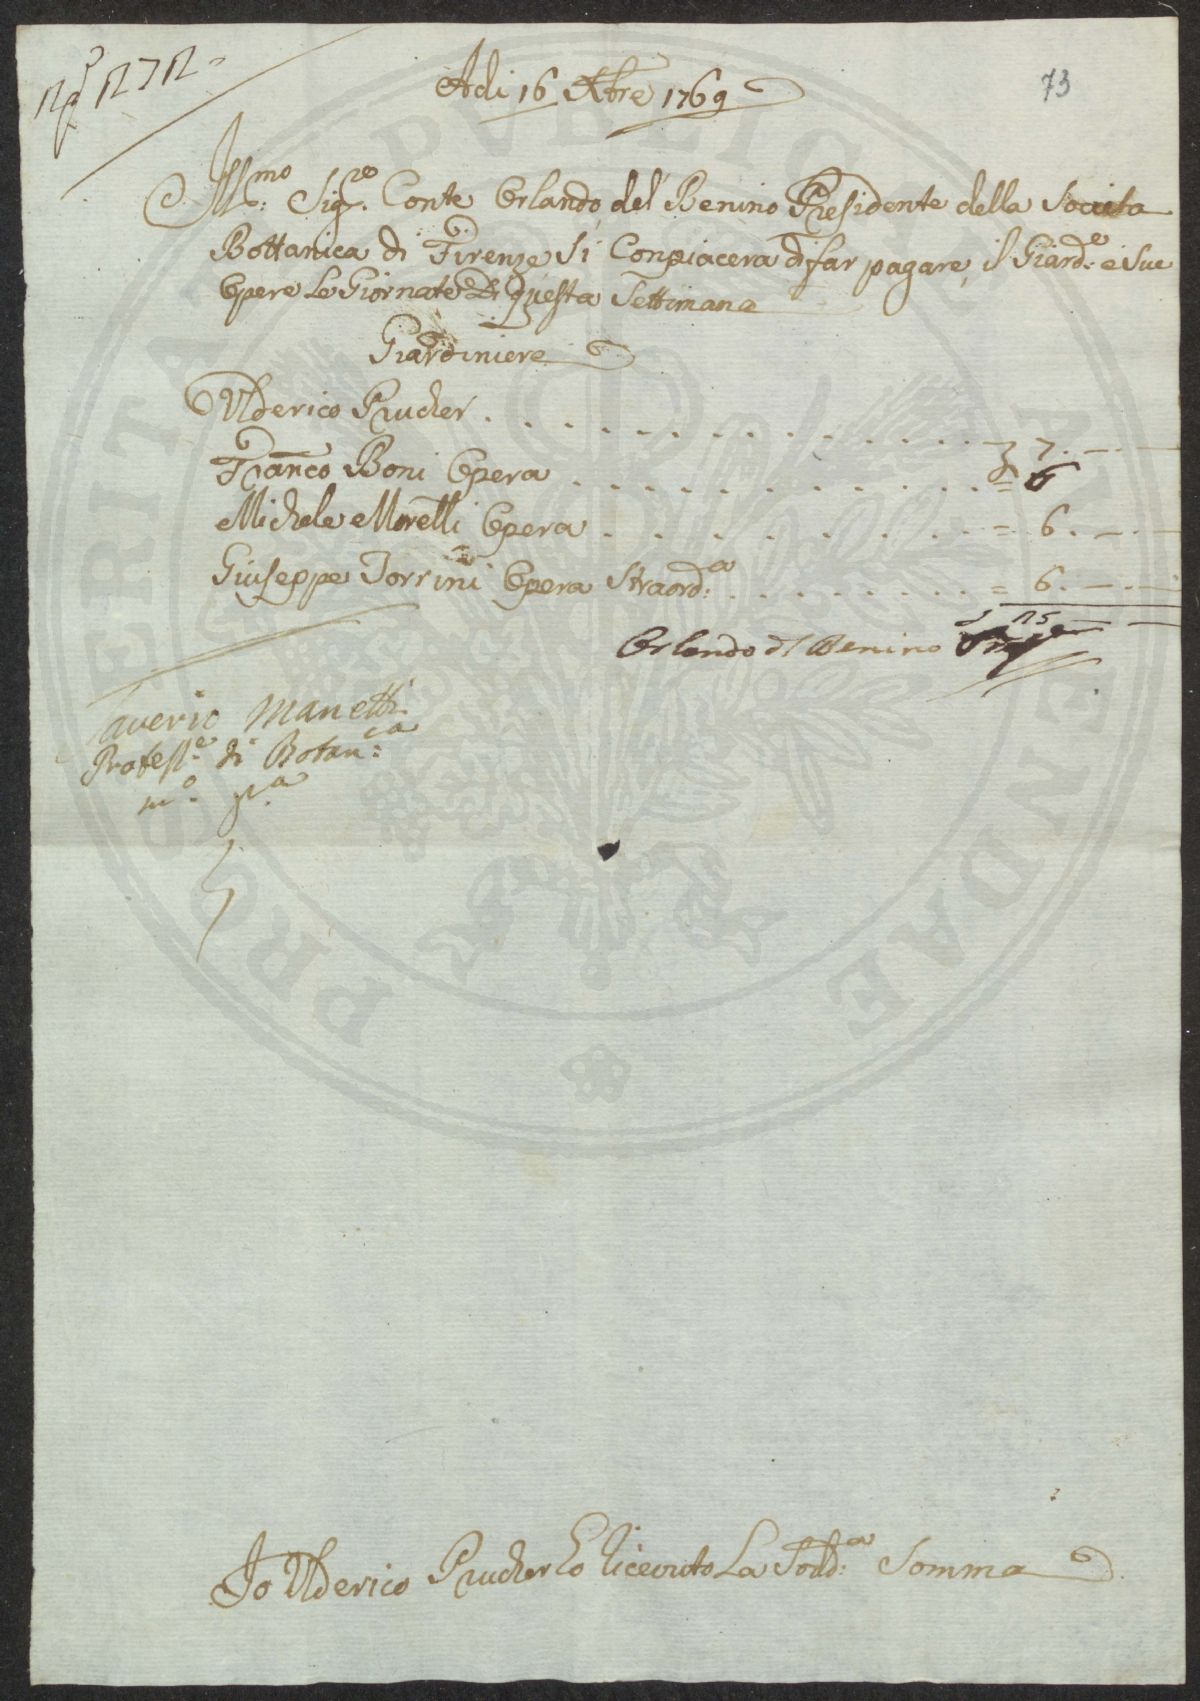 73
Adi 16 Xbre 1769
Ill.mo Sig.re Conte Orlando del Benino Presidente della Societa
Bottanica di Firenze Si Conpiacera di far pagare, il Giard.e e Sue
Opere Le Giornate Di Questa Settimana
Giardiniere
Ulderico Prucher . . . . . . . . . . . . 7. —
Franco Boni Opera . . . . . . . . . . . . = 6
Michele Moretti Opera . . . . . . . . . . = 6. —
Giuseppe Torrini Opera Straord.a . . . . . . . . = 6. —
Orlando del Benino
Saverio Manetti
Profess.e di Botan.ca
m.o p.a
Io Ulderico Prucher ho ricevuto La Sodd.a Somma
PROSPERITATI PVBLICAE AVGENDAE